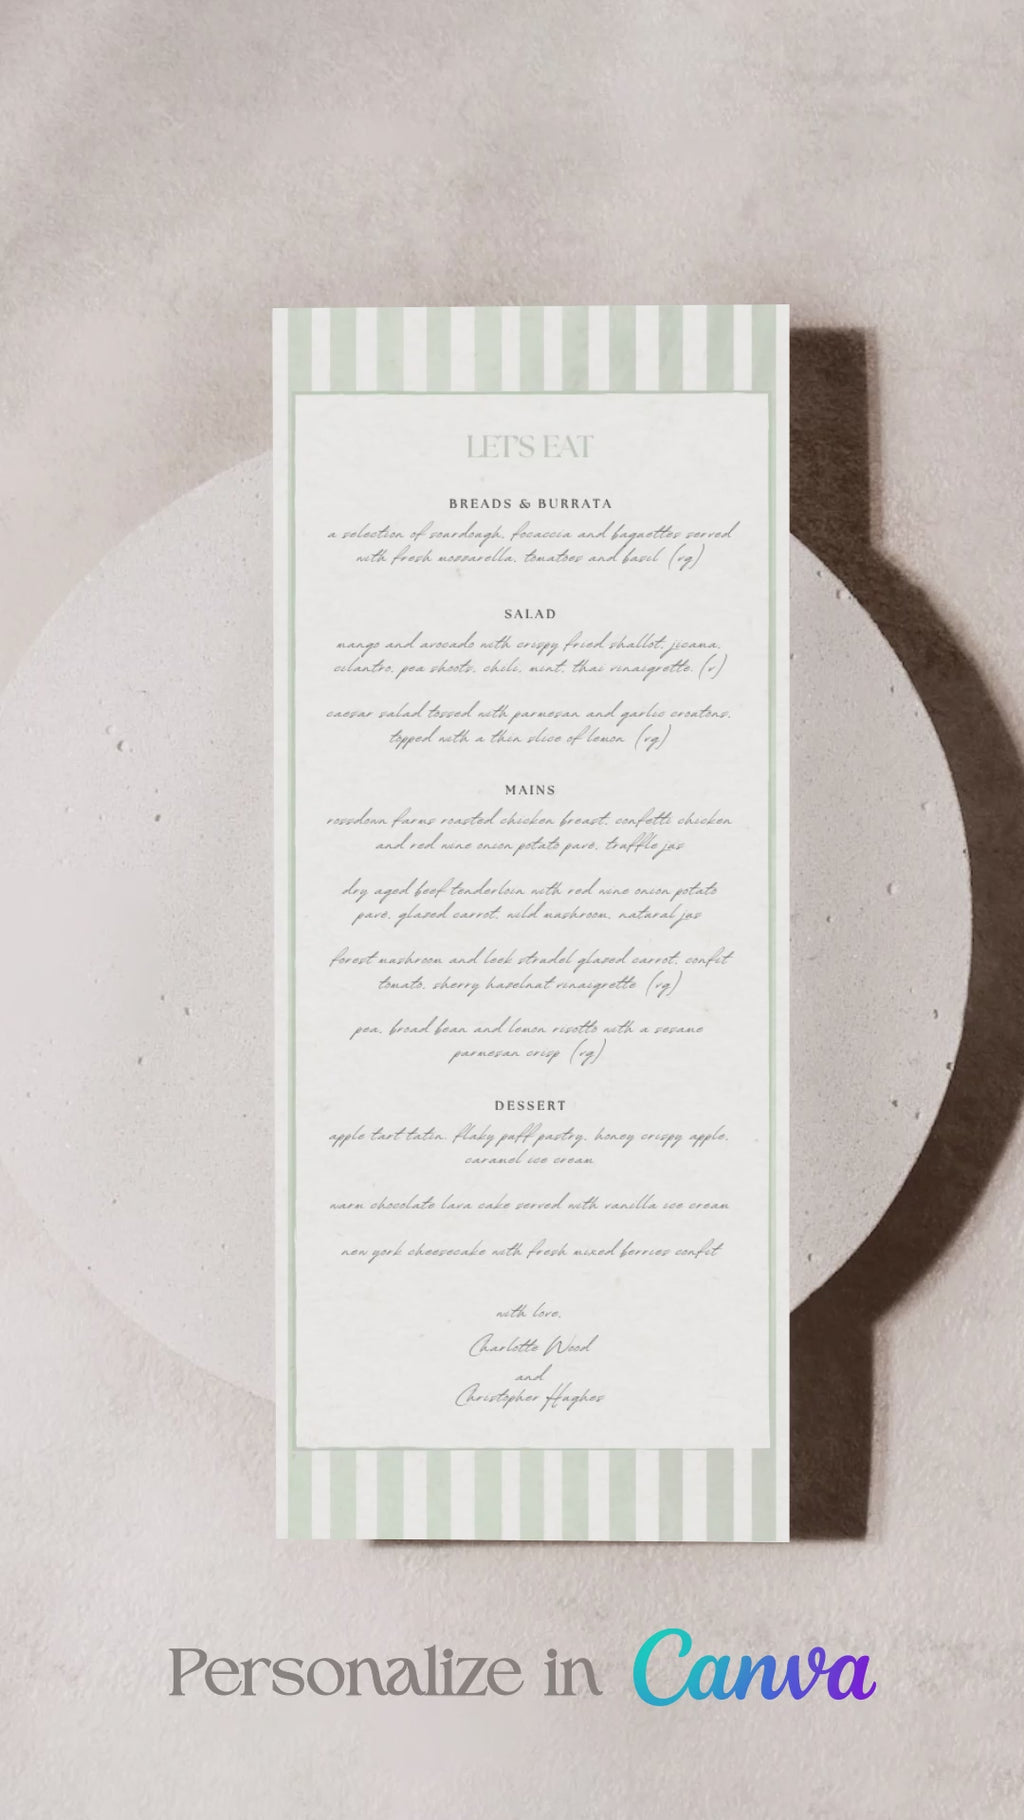 LET'S EAT
BREADS & BURRATA
a selection of sourdough, focaccia and baguettes served
with fresh mozzarella, tomatoes and basil (vg)
SALAD
mango and avocado with crispy fried shallot, jicama,
cilantro, pea shoots, chili, mint, thai vinaigrette (v)
caesar salad tossed with parmesan and garlic croutons,
topped with a thin slice of lemon (vg)
MAINS
rossdown farms roasted chicken breast, confetti chicken
and red wine onion potato pavé, truffle jus
dry aged beef tenderloin with red wine onion potato
pavé, glazed carrot, wild mushroom, natural jus
forest mushroom and leek strudel glazed carrot, confit
tomato, sherry hazelnut vinaigrette (vg)
pea, broad bean and lemon risotto with a sesame
parmesan crisp (vg)
DESSERT
apple tart tatin, flaky puff pastry, honey crispy apple,
caramel ice cream
warm chocolate lava cake served with vanilla ice cream
new york cheesecake with fresh mixed berries confit
with love,
Charlotte Wood
and
Christopher Hughes
Personalize in Canva